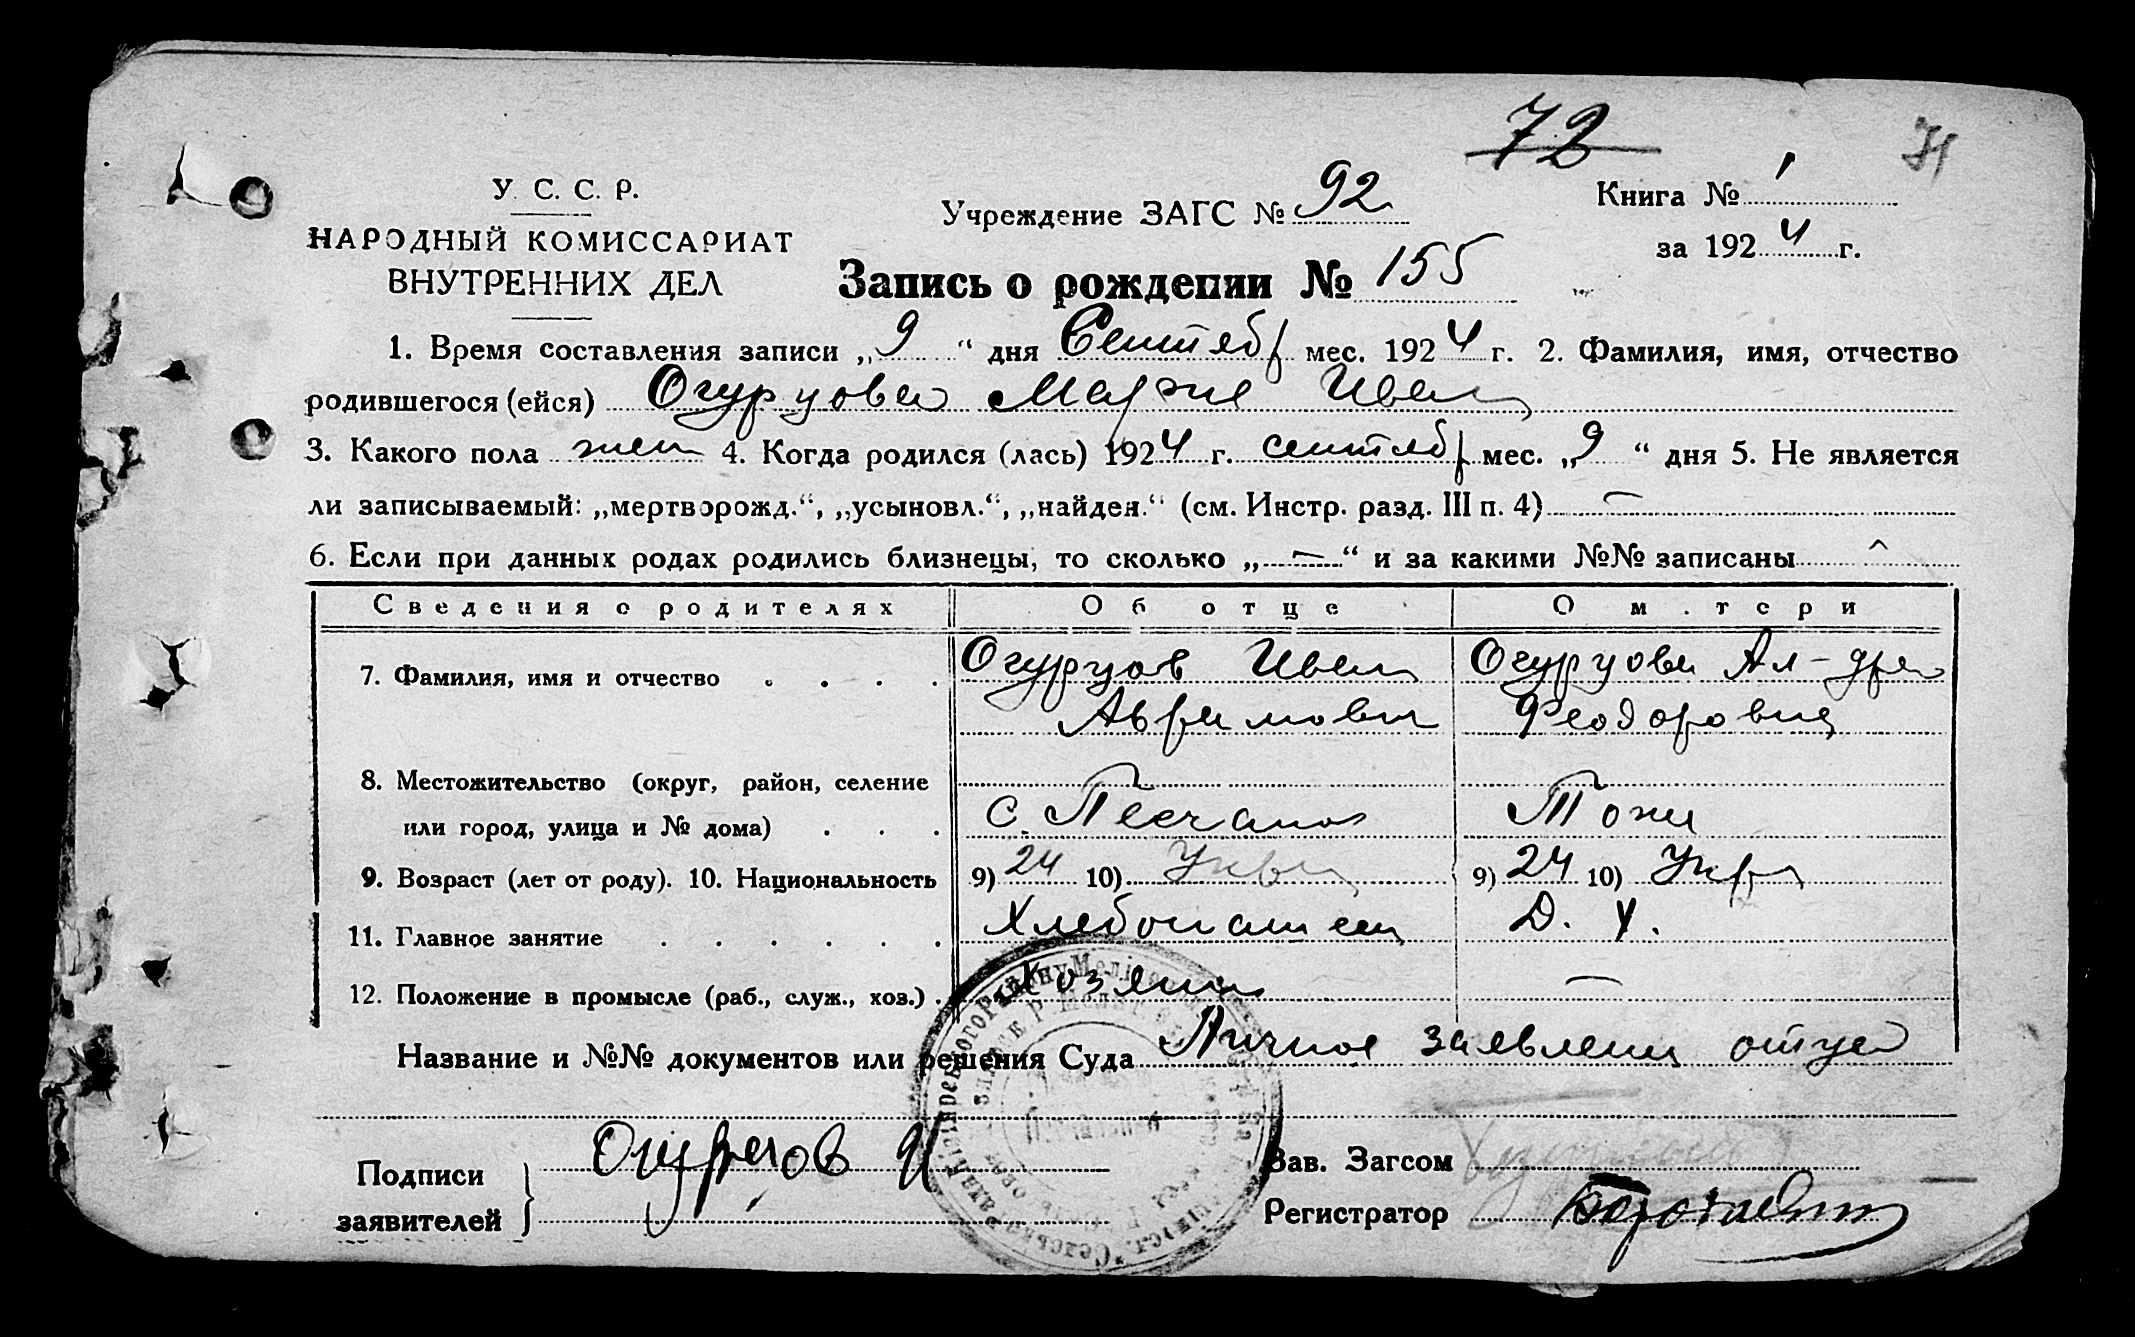 72
71
У. С. С. Р.
НАРОДНЫЙ КОМИССАРИАТ
ВНУТРЕННИХ ДЕЛ
Учреждение ЗАГС № 92
Книга № 1
за 1924 г.
Запись о рождении № 155
1. Время составления записи „9“ дня Сентябр мес. 1924 г. 2. Фамилия, имя, отчество
родившегося (ейся) Огурцова Мария Иван
3. Какого пола жен 4. Когда родился (лась) 1924 г. сентябр мес. „9“ дня 5. Не является
ли записываемый: „мертворожд.“, „усыновл.“, „найден.“ (см. Инстр. разд. III п. 4) —
6. Если при данных родах родились близнецы, то сколько „—“ и за какими №№ записаны
Сведения о родителях Об отце О м.тери
7. Фамилия, имя и отчество . . . . Огурцов Иван Огурцова Ал-дра
Аврамович Феодоровна
8. Местожительство (округ, район, селение
или город, улица и № дома) . . . с. Песчаное Тоже
9. Возраст (лет от роду). 10. Национальность 9) 24 10) Укр 9) 24 10) Укр
11. Главное занятие . . . . . . Хлебопашец Д. Х.
12. Положение в промысле (раб., служ., хоз.) . Хозяин —
Название и №№ документов или решения Суда Личное заявление отца
Подписи
заявителей
Огурцов И
Зав. Загсом
Регистратор